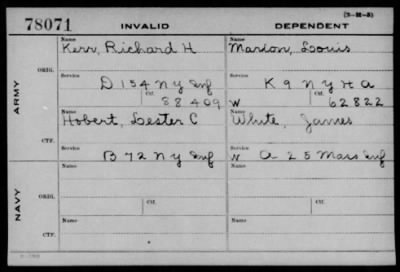 (3-21-5)
78071 INVALID DEPENDENT
Name Name
Kerr, Richard H Marion, Louis
ARMY
ORIG.
Service Service
D 154 N Y Inf K 9 N Y H A
Ctf. Ctf.
88409 W 62822
Name Name
Hobert, Lester C White, James
CTF.
Service Service
B 72 N Y Inf W A 25 Mass Inf
NAVY
Name Name
ORIG.
Service Service
Ctf. Ctf.
Name Name
CTF.
Service Service